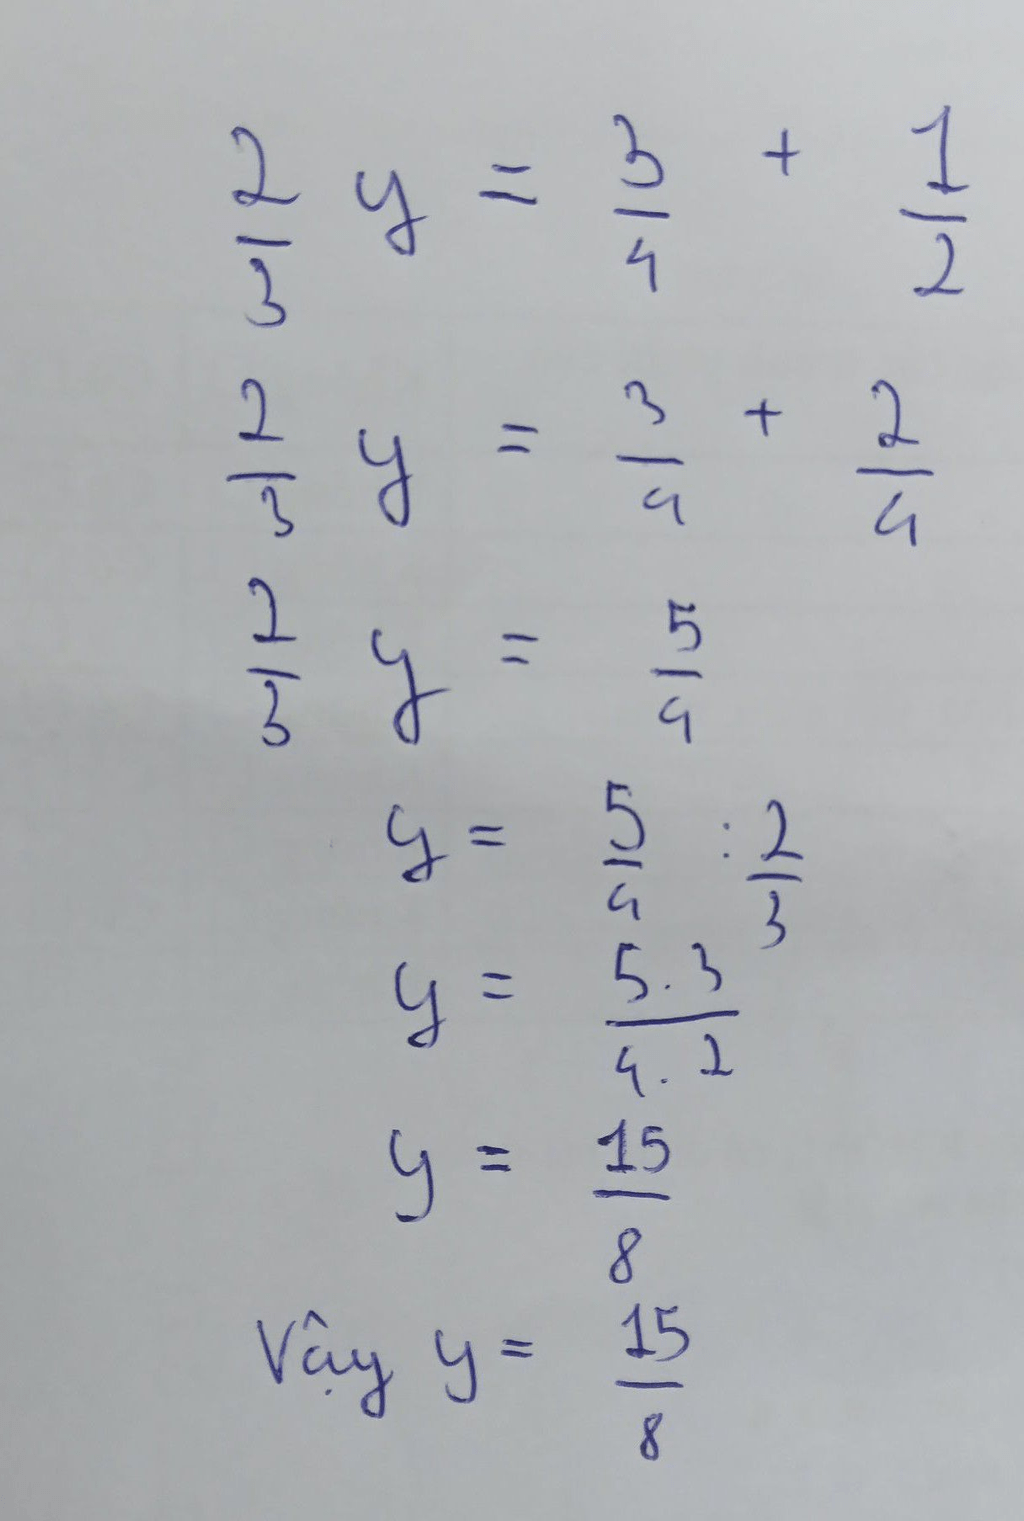 2/3 y = 3/4 + 1/2
2/3 y = 3/4 + 2/4
2/3 y = 5/4
y = 5/4 : 2/3
y = 5.3/4.2
y = 15/8
Vậy y = 15/8